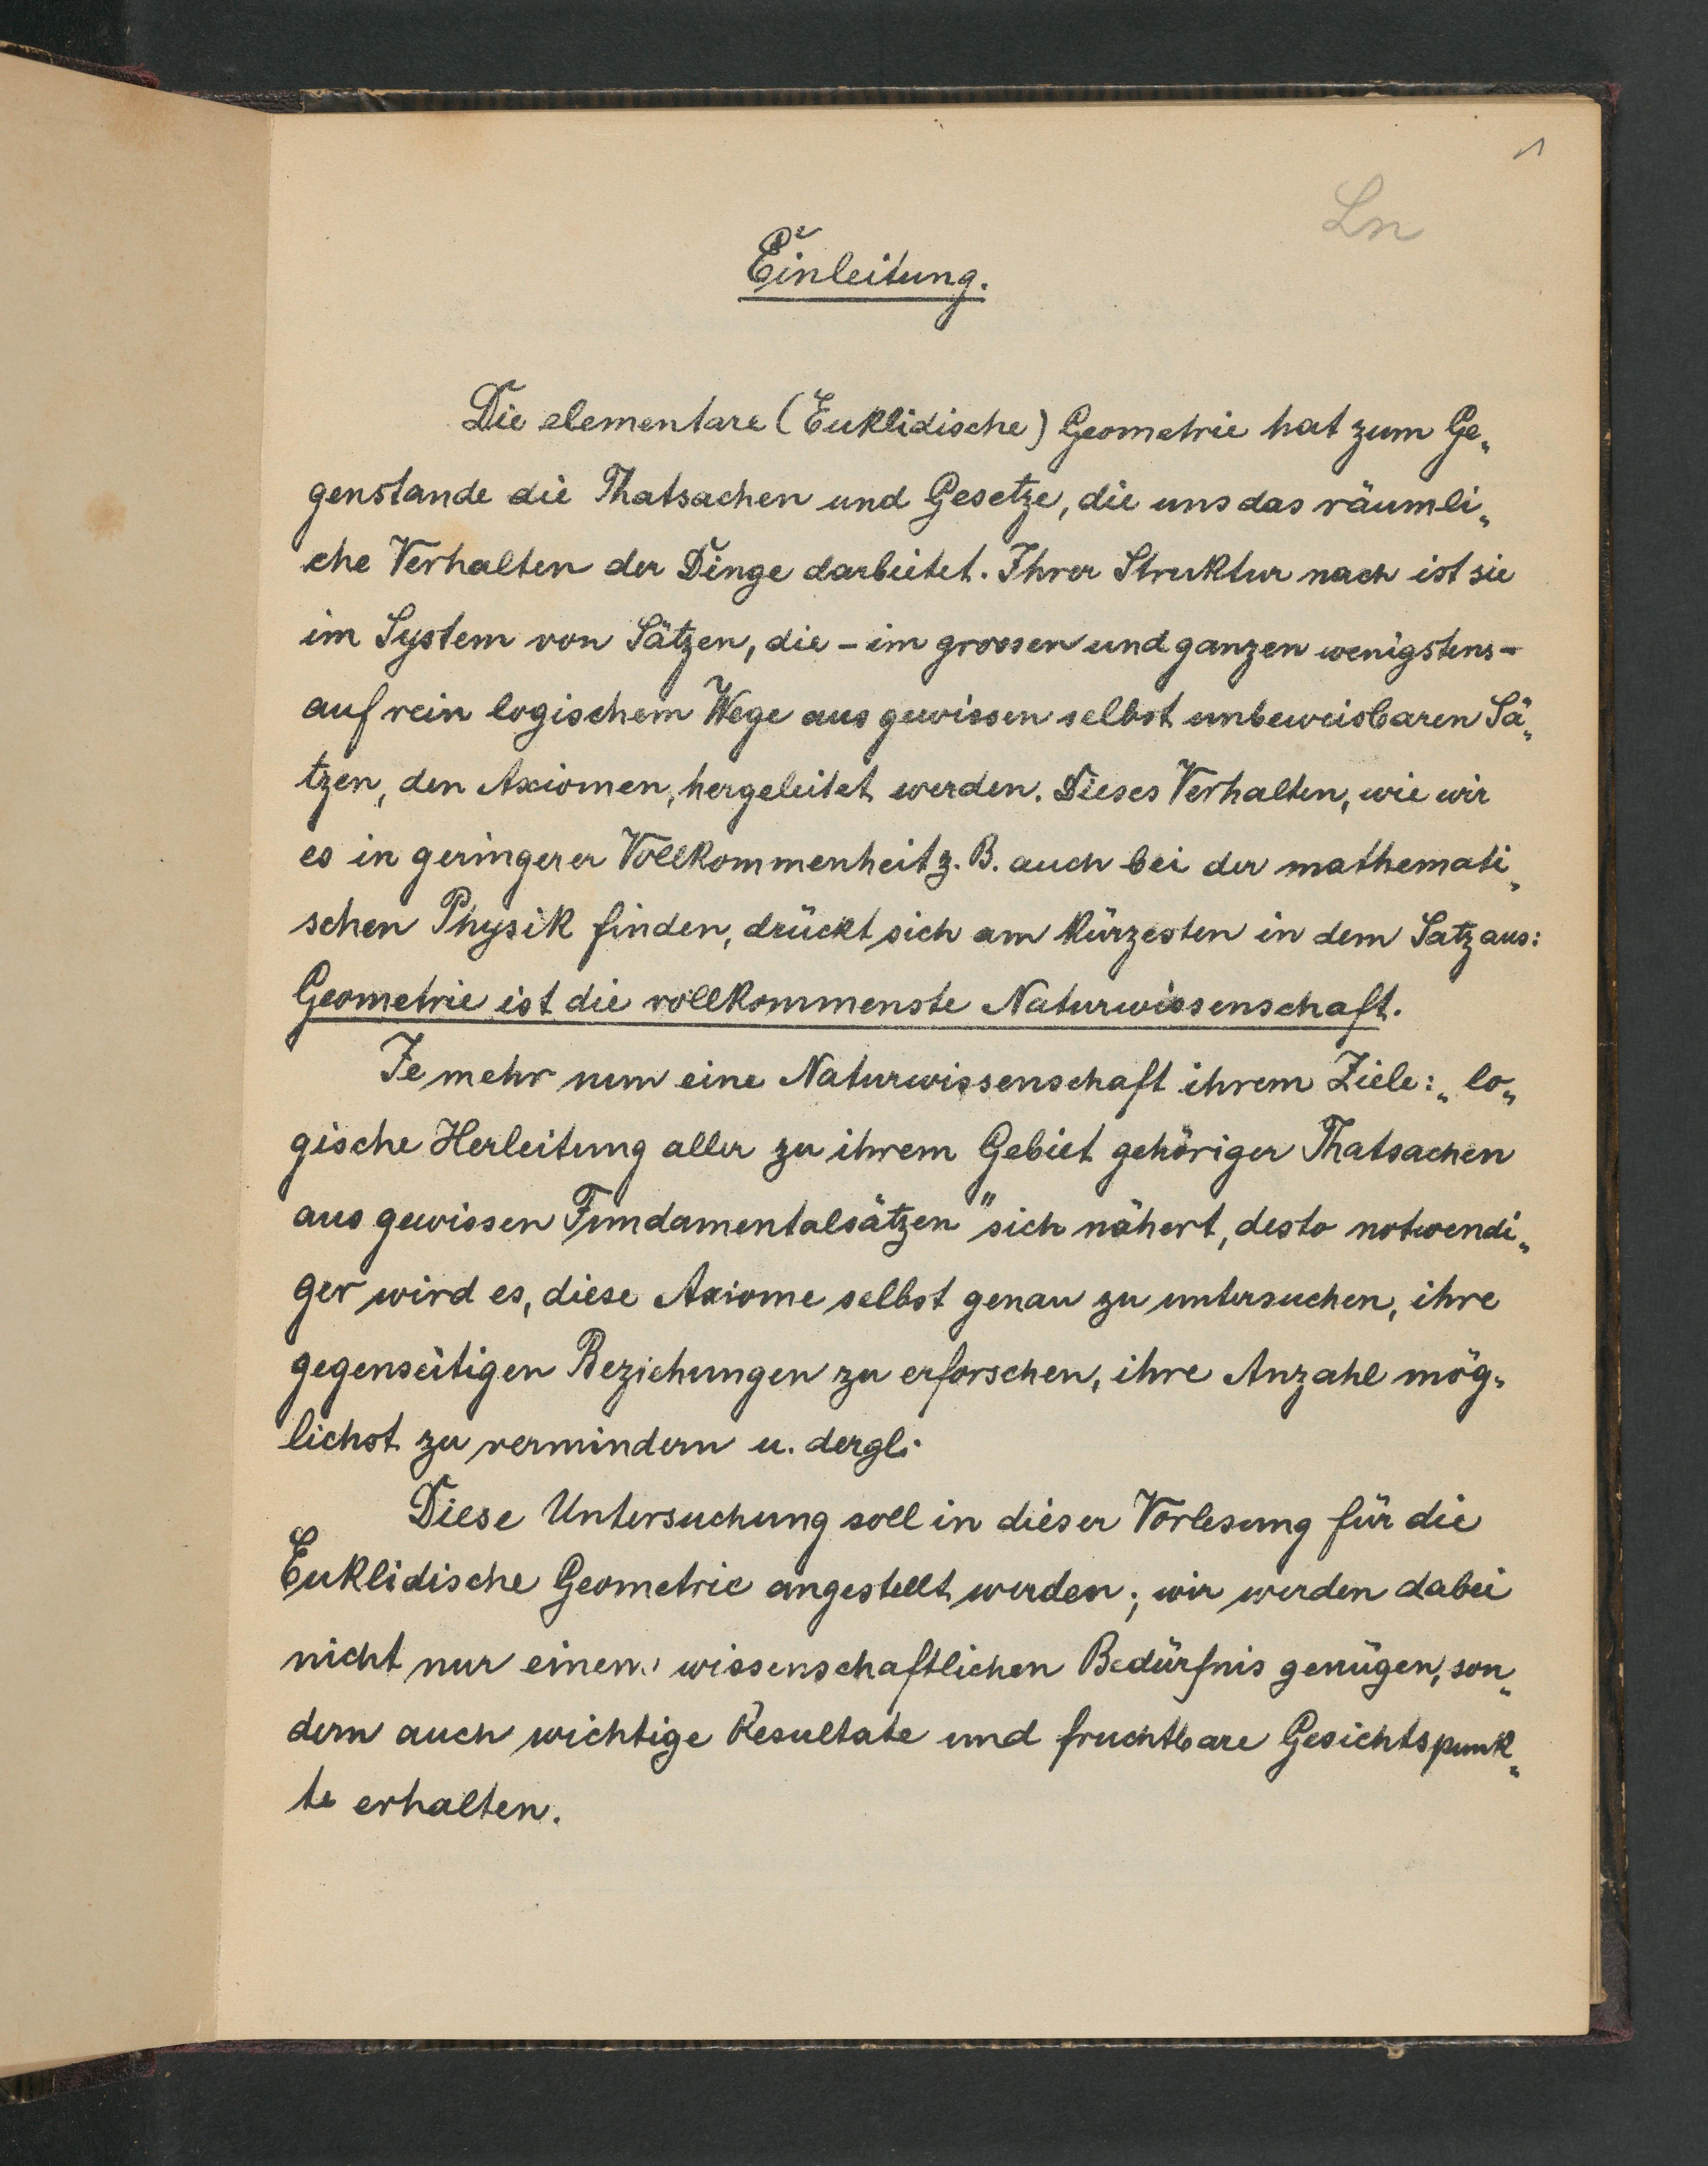 1
Ln
Einleitung.
Die elementare (Euklidische) Geometrie hat zum Ge„
genstande die Thatsachen und Gesetze, die uns das räumli„
che Verhalten der Dinge darbietet. Ihrer Struktur nach ist sie
im System von Sätzen, die - im grossen und ganzen wenigstens -
auf rein logischem Wege aus gewissen selbst unbeweisbaren Sä„
tzen, den Axiomen, hergeleitet werden. Dieses Verhalten, wie wir
es in geringerer Vollkommenheit z. B. auch bei der mathemati„
schen Physik finden, drückt sich am kürzesten in dem Satz aus:
Geometrie ist die vollkommenste Naturwissenschaft.
Je mehr nun eine Naturwissenschaft ihrem Ziele: „lo„
gische Herleitung aller zu ihrem Gebiet gehöriger Thatsachen
aus gewissen Fundamentalsätzen" sich nähert, desto notwendi„
ger wird es, diese Axiome selbst genau zu untersuchen, ihre
gegenseitigen Beziehungen zu erforschen, ihre Anzahl mög„
lichst zu vermindern u. dergl.
Diese Untersuchung soll in dieser Vorlesung für die
Euklidische Geometrie angestellt werden; wir werden dabei
nicht nur einem wissenschaftlichen Bedürfnis genügen, son„
dern auch wichtige Resultate und fruchtbare Gesichtspunk„
te erhalten.